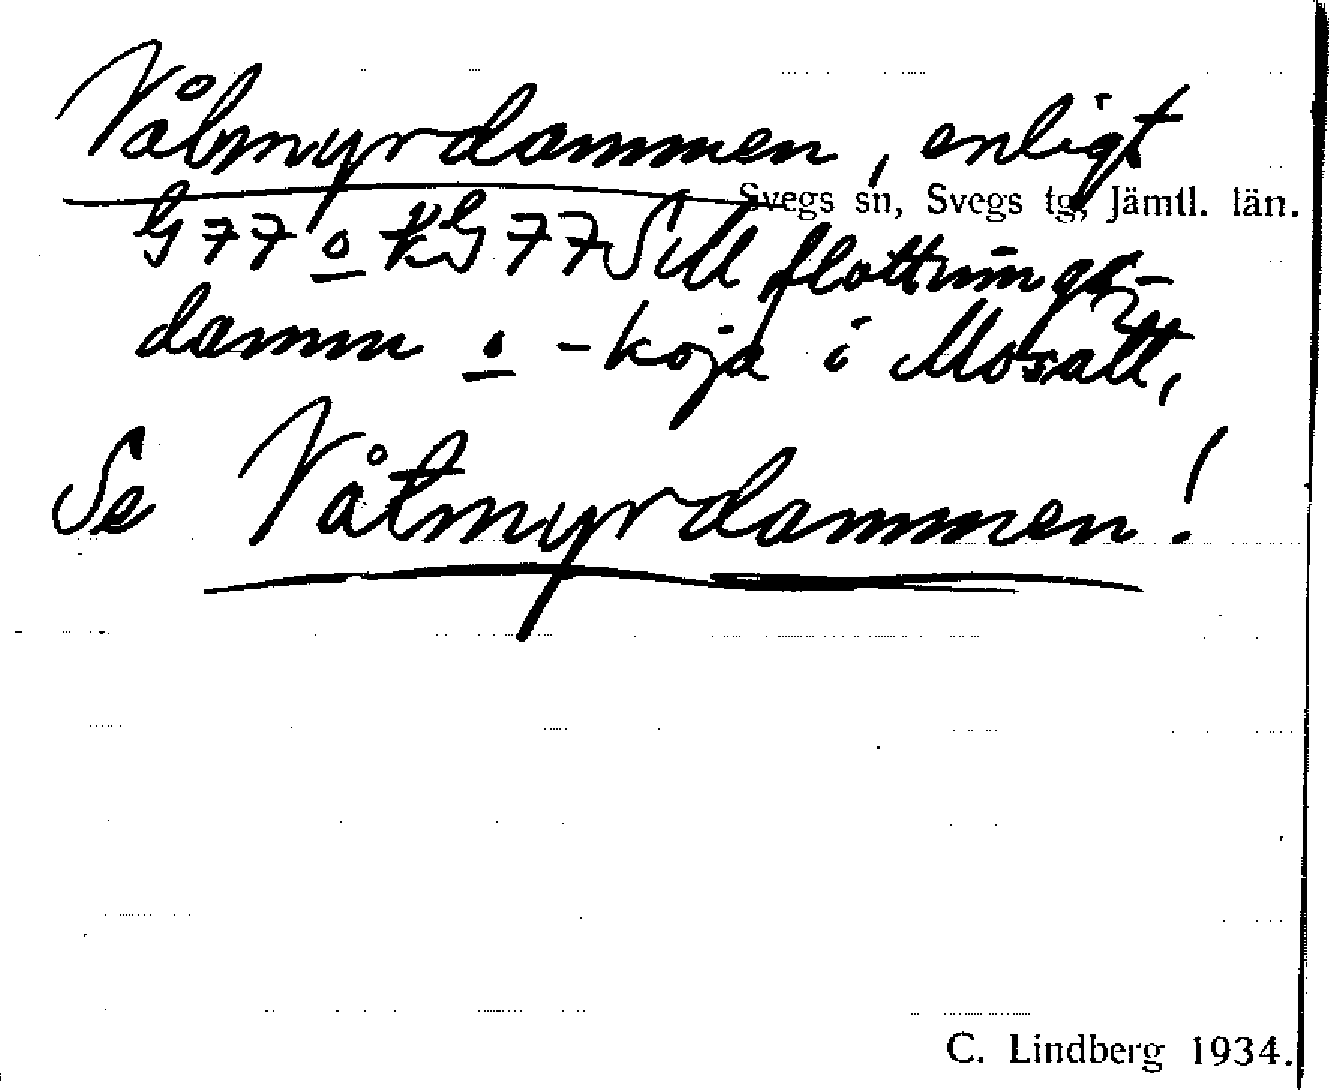 Vålmyrdammen, enligt
Svegs sn, Svegs tg, Jämtl. län.
G 77 o kG 77 SV flottnings-
damm o -koja i Mosätt,
Se Våtmyrdammen!
C. Lindberg 1934.